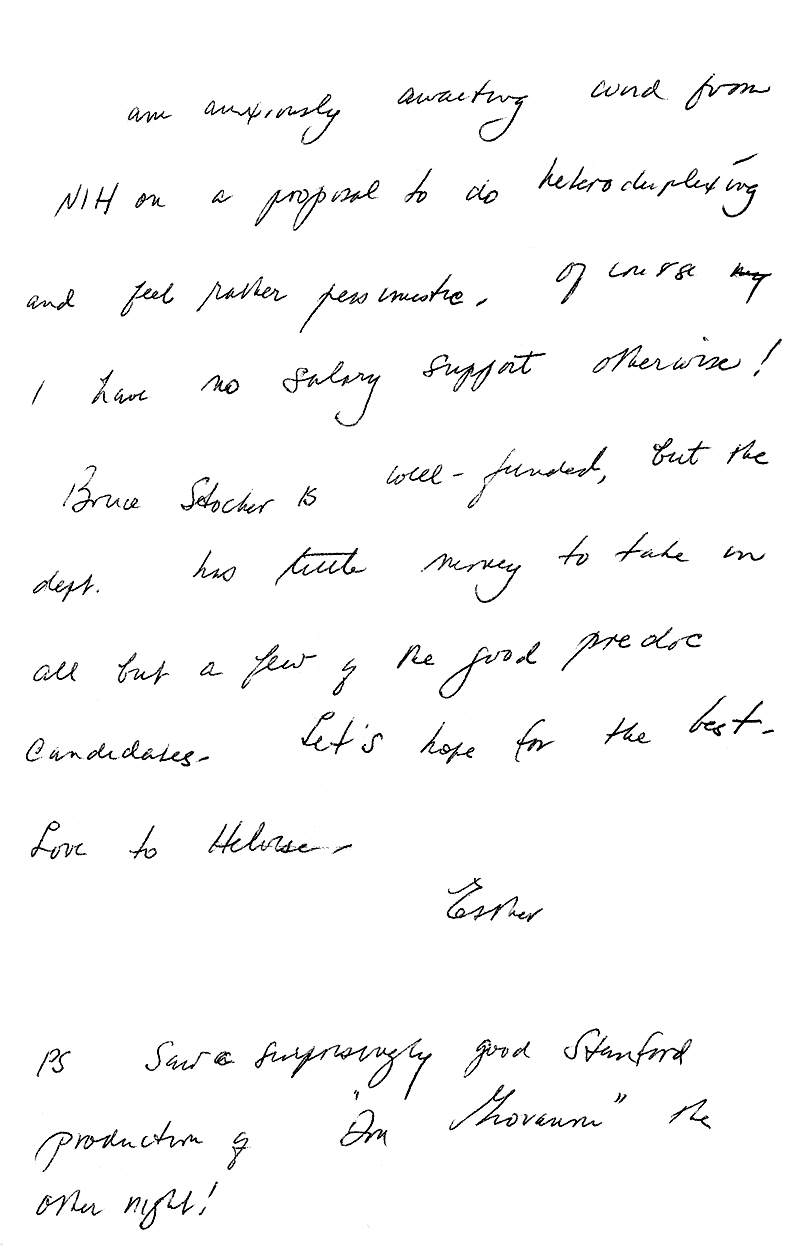 am anxiously awaiting word from
NIH on a proposal to do heteroduplexing
and feel rather pessimistic. Of course my
I have no salary support otherwise!
Bruce Stocker is well-funded, but the
dept. has little money to take in
all but a few of the good predoc
candidates. Let's hope for the best.
Love to Heloise.
Esther
PS Saw a surprisingly good Stanford
production of "Don Giovanni" the
other night!